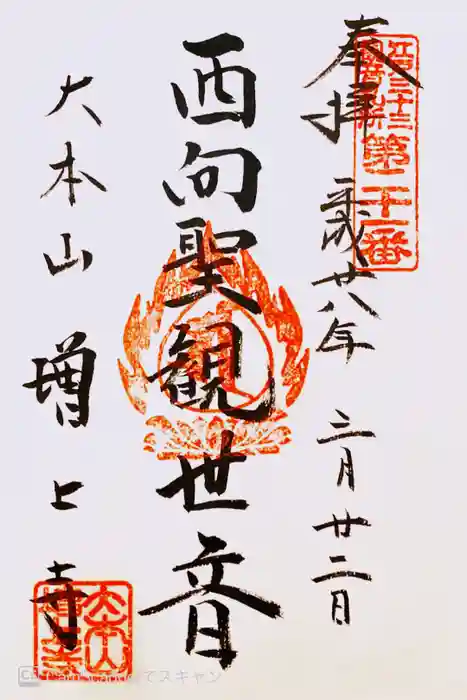 奉拝
平成廿八年
三月廿二日
江戸三十三
観音札所
第二十一番
西向聖観世音
大本山
増上寺
大本山
増上寺
CamScannerでスキャン